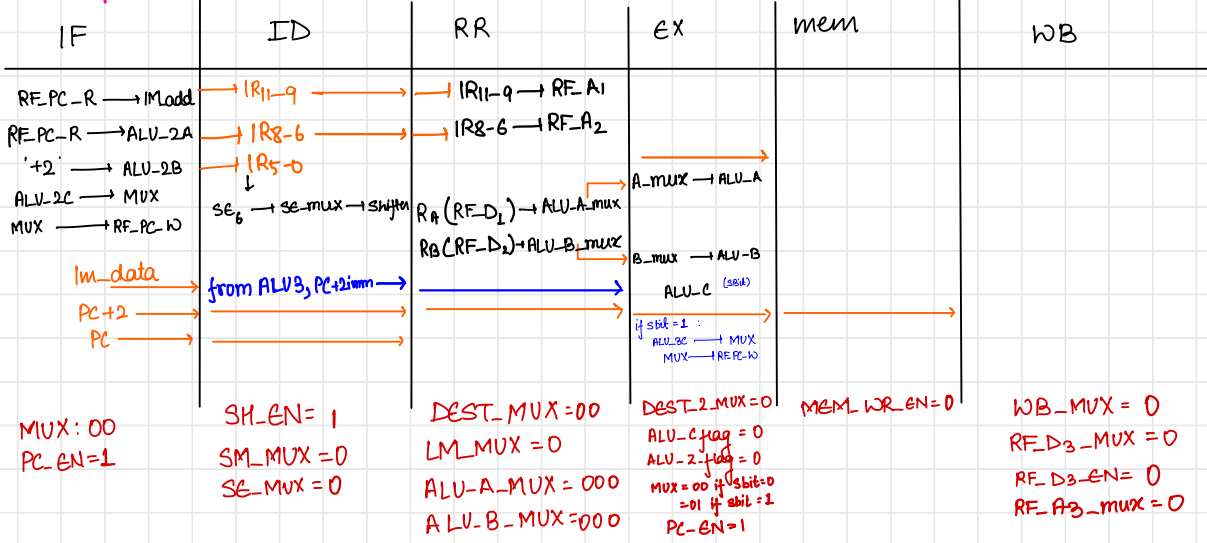 IF
RF_PC_R → IM_add
RF_PC_R → ALU_2A
'+2' → ALU_2B
ALU_2C → MUX
MUX → RF_PC_W
Im_data
PC+2
PC
MUX: 00
PC_EN=1
ID
IR11-9
IR8-6
IR5-0
SE6 → SE_mux → Shifter
from ALU3, PC+2imm
SH_EN= 1
SM_MUX =0
SE_MUX = 0
RR
IR11-9 → RF_A1
IR8-6 → RF_A2
RA (RF_D1) → ALU_A_mux
RB (RF_D2) → ALU_B_mux
DEST_MUX =00
LM_MUX = 0
ALU-A_MUX = 000
ALU-B_MUX =000
EX
A_mux → ALU_A
B_mux → ALU-B
ALU_C (sbit)
if sbit =1 :
ALU_3C → MUX
MUX → RF_PC-W
DEST_2_MUX=0
ALU_C flag = 0
ALU-Z-flag = 0
MUX = 00 if sbit=0
=01 if sbit =1
PC-EN=1
mem
MEM_WR_EN=0
WB
WB_MUX = 0
RF_D3_MUX = 0
RF_D3_EN= 0
RF_A3_mux = 0